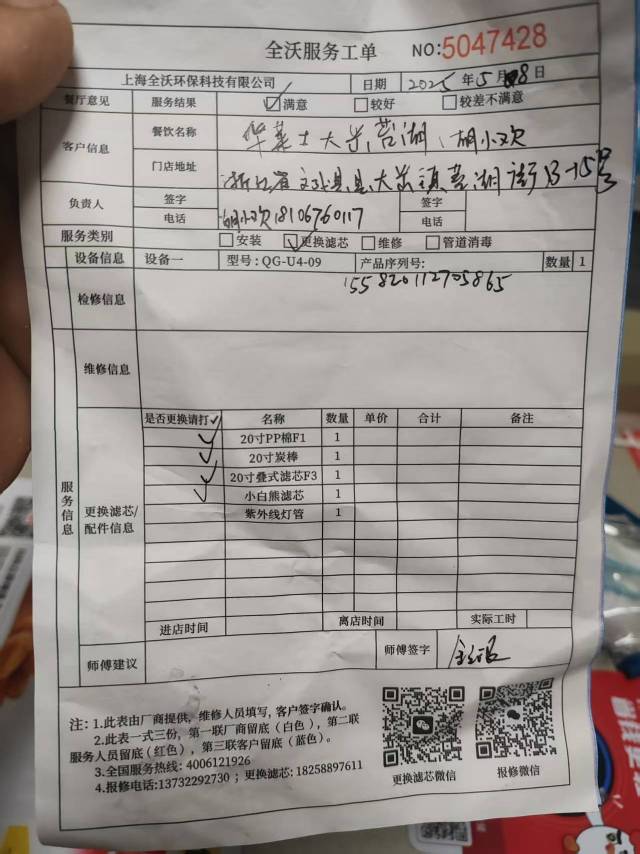 全沃服务工单 NO:5047428
上海全沃环保科技有限公司 日期 2025年5月8日
餐厅意见 服务结果 ☑满意 □较好 □较差不满意
客户信息 餐饮名称 华莱士大峃苔湖 胡小欢
门店地址 浙江省文成县大峃镇苔湖街13-15号
负责人 签字 胡小欢 签字
电话 18106760117 电话
服务类别 □安装 ☑更换滤芯 □维修 □管道消毒
设备信息 设备一 型号:QG-U4-09 产品序列号: 数量 1
155820112705865
检修信息
维修信息
服务信息
更换滤芯/配件信息
是否更换请打✓ 名称 数量 单价 合计 备注
✓ 20寸PP棉F1 1
✓ 20寸炭棒 1
✓ 20寸叠式滤芯F3 1
✓ 小白熊滤芯 1
紫外线灯管 1
进店时间 离店时间 实际工时
师傅建议 师傅签字
注: 1.此表由厂商提供, 维修人员填写, 客户签字确认。
2.此表一式三份, 第一联厂商留底(白色), 第二联
服务人员留底(红色), 第三联客户留底(蓝色)。
3.全国服务热线: 4006121926
4.报修电话:13732292730 ; 更换滤芯: 18258897611
更换滤芯微信 报修微信